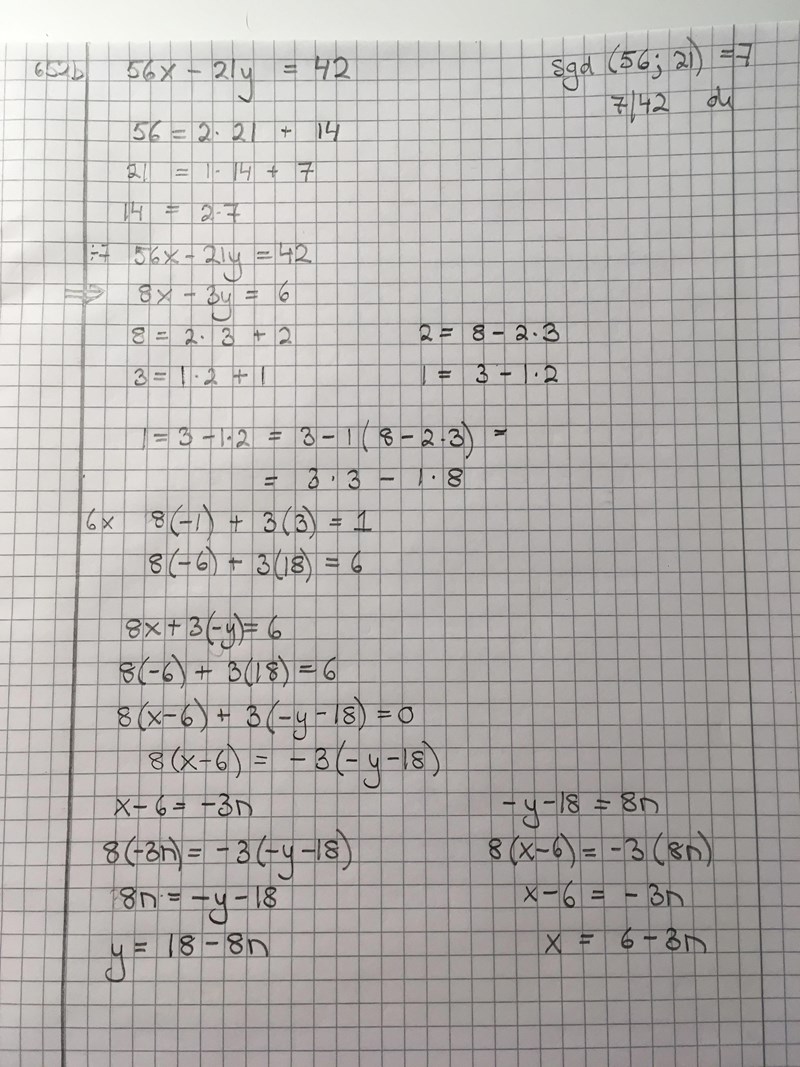 652b 56x - 21y = 42 sgd (56; 21) = 7
7|42 du
56 = 2·21 + 14
21 = 1·14 + 7
14 = 2·7
÷7 56x - 21y = 42
⇒ 8x - 3y = 6
8 = 2·3 + 2 2 = 8 - 2·3
3 = 1·2 + 1 1 = 3 - 1·2
1 = 3 - 1·2 = 3 - 1(8 - 2·3) =
= 3·3 - 1·8
6x 8(-1) + 3(3) = 1
8(-6) + 3(18) = 6
8x + 3(-y) = 6
8(-6) + 3(18) = 6
8(x-6) + 3(-y-18) = 0
8(x-6) = -3(-y-18)
x-6 = -3n -y-18 = 8n
8(-3n) = -3(-y-18) 8(x-6) = -3(8n)
8n = -y-18 x-6 = -3n
y = 18 - 8n x = 6 - 3n